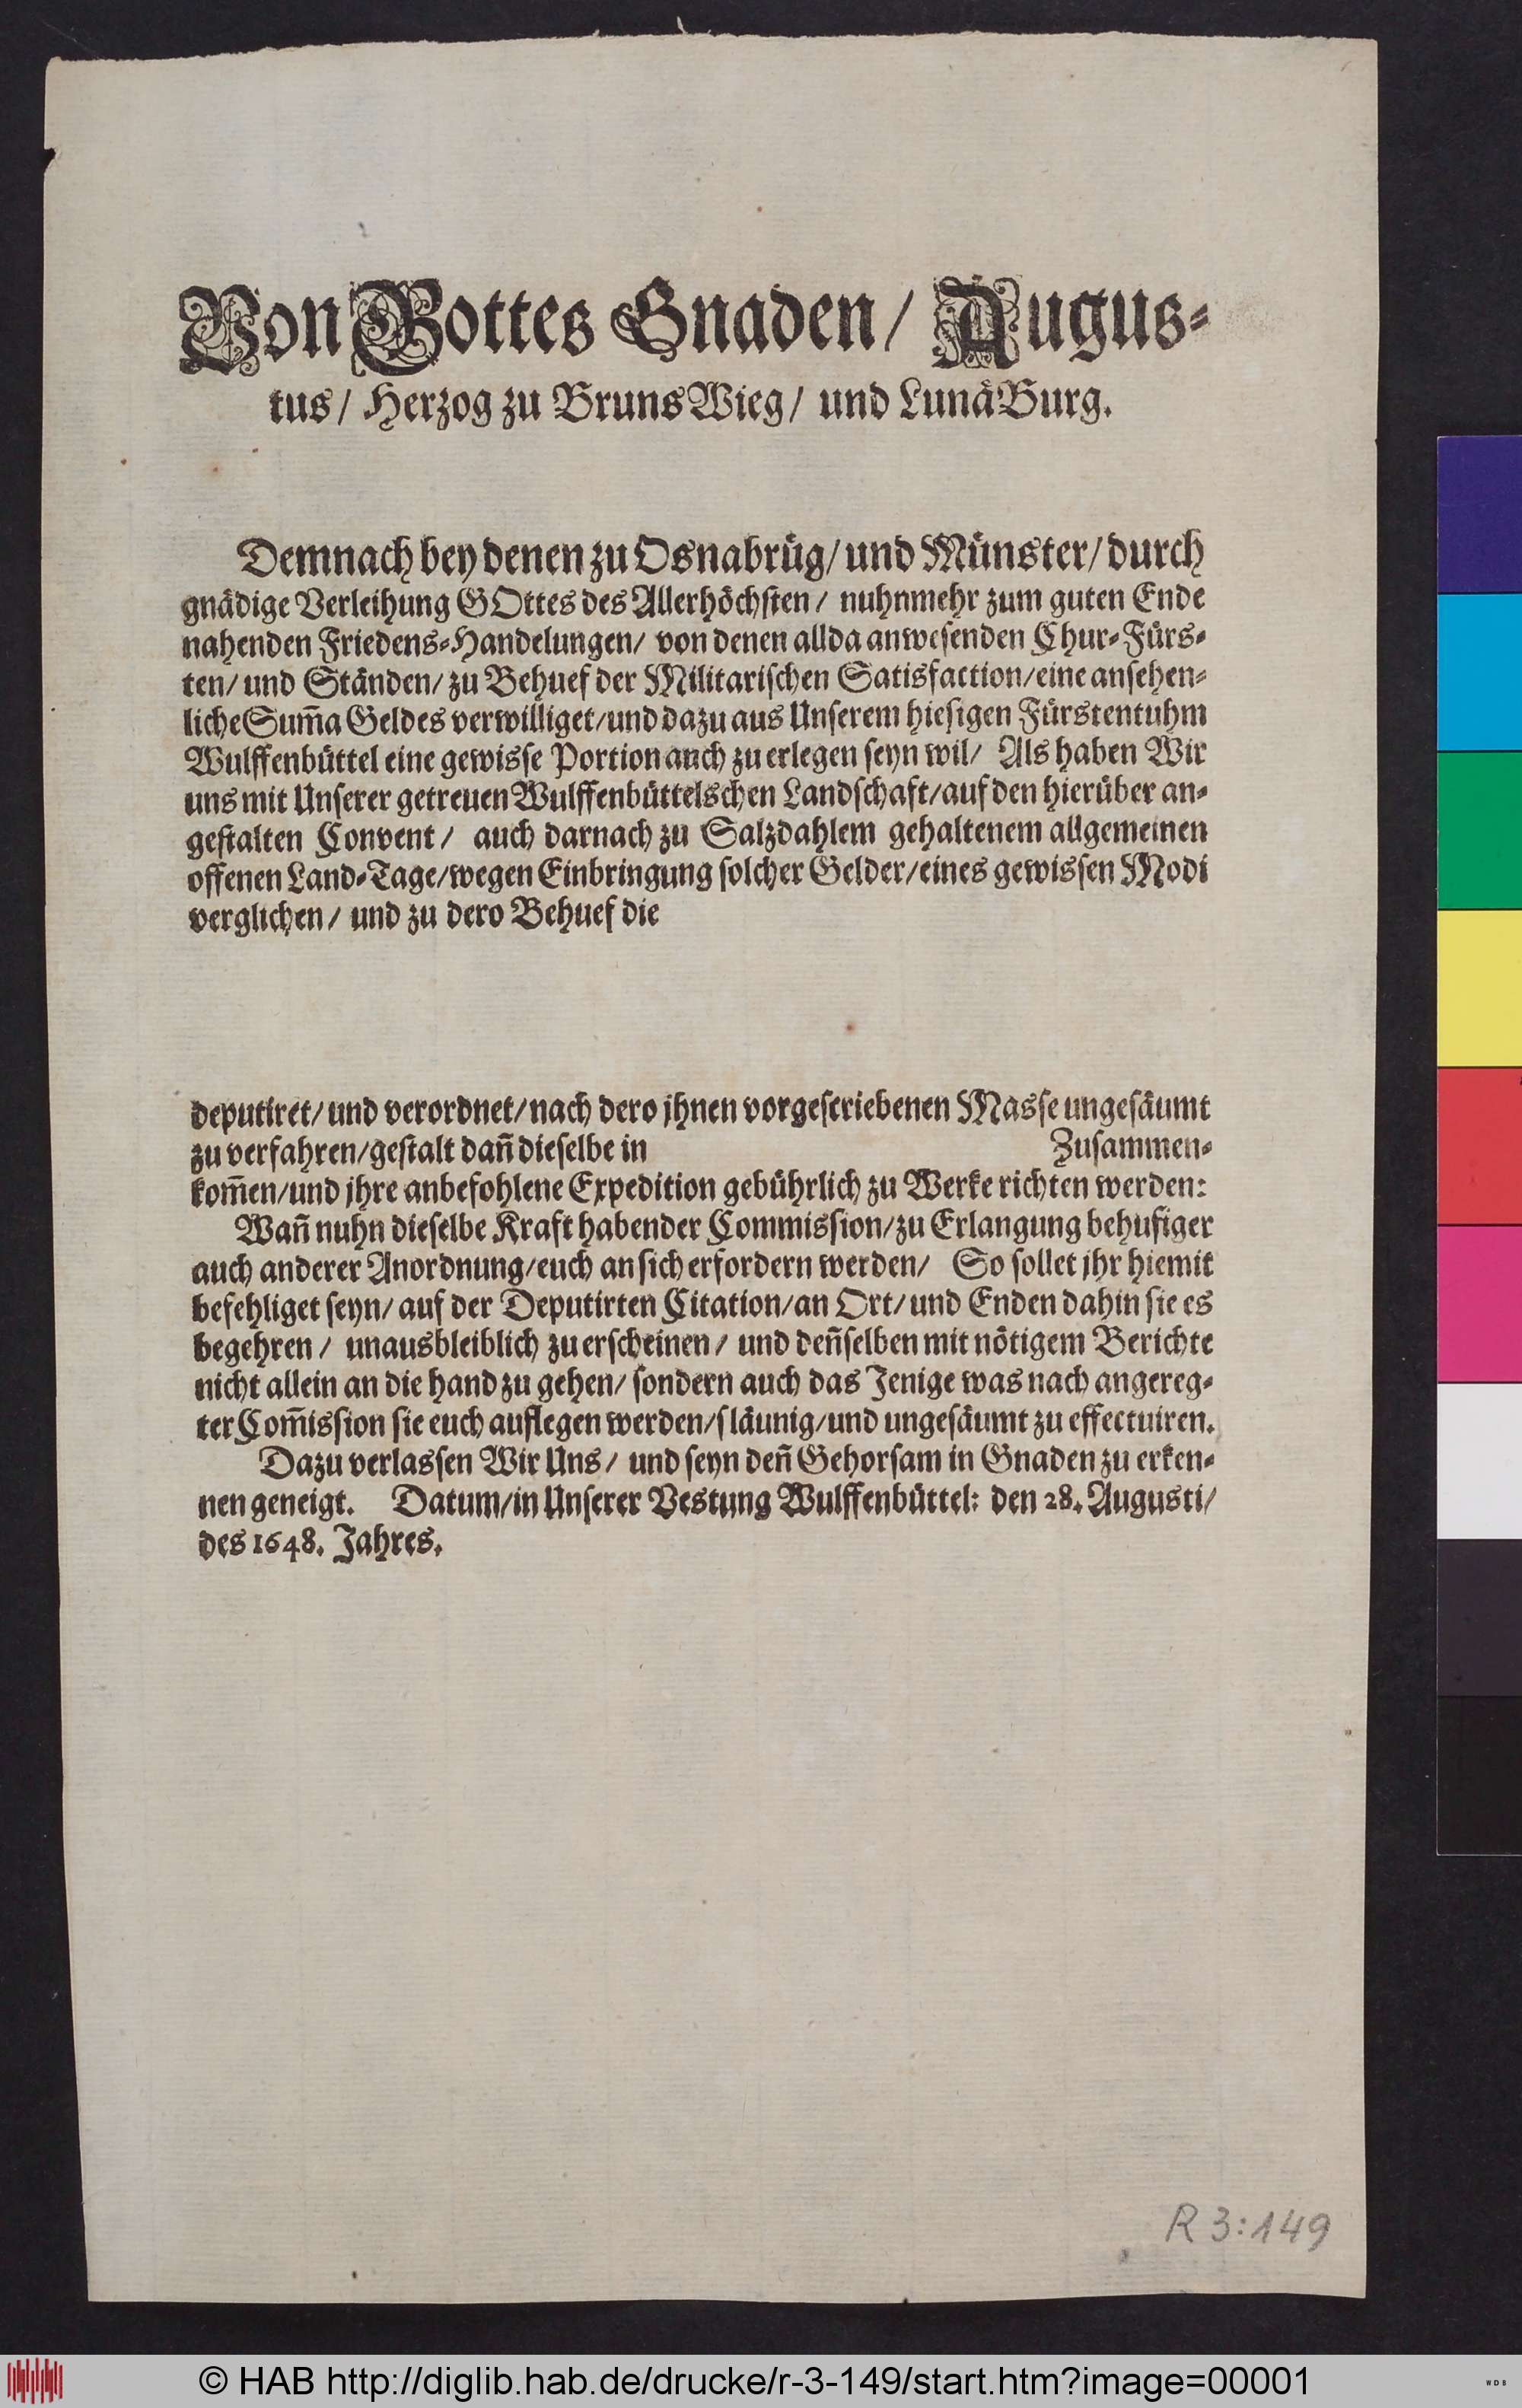 Von Gottes Gnaden/ Augus-
tus/ Herzog zu BrunsWieg/ und LunäBurg.
Demnach bey denen zu Osnabrüg/ und Münster/ durch
gnädige Verleihung GOttes des Allerhöchsten/ nuhnmehr zum guten Ende
nahenden Friedens-Handelungen/ von denen allda anwesenden Chur-Fürs-
ten/ und Ständen/ zu Behuef der Militarischen Satisfaction/ eine ansehen-
liche Sum̃a Geldes verwilliget/ und dazu aus Unserem hiesigen Fürstentuhm
Wulffenbüttel eine gewisse Portion auch zu erlegen seyn wil/ Als haben Wir
uns mit Unserer getreuen Wulffenbüttelschen Landschaft/ auf den hierüber an-
gestalten Convent/ auch darnach zu Salzdahlem gehaltenem allgemeinen
offenen Land-Tage/ wegen Einbringung solcher Gelder/ eines gewissen Modi
verglichen/ und zu dero Behuef die
deputiret/ und verordnet/ nach dero jhnen vorgescriebenen Masse ungesäumt
zu verfahren/ gestalt dañ dieselbe in Zusammen-
kom̃en/ und jhre anbefohlene Expedition gebührlich zu Werke richten werden:
Wañ nuhn dieselbe Kraft habender Commission/ zu Erlangung behufiger
auch anderer Anordnung/ euch an sich erfordern werden/ So sollet jhr hiemit
befehliget seyn/ auf der Deputirten Citation/ an Ort/ und Enden dahin sie es
begehren/ unausbleiblich zu erscheinen/ und deñselben mit nötigem Berichte
nicht allein an die hand zu gehen/ sondern auch das Jenige was nach angereg-
ter Com̃ission sie euch auflegen werden/ släunig/ und ungesäumt zu effectuiren.
Dazu verlassen Wir Uns/ und seyn deñ Gehorsam in Gnaden zu erken-
nen geneigt. Datum/ in Unserer Vestung Wulffenbüttel: den 28. Augusti/
des 1648. Jahres.
R 3:149
© HAB http://diglib.hab.de/drucke/r-3-149/start.htm?image=00001